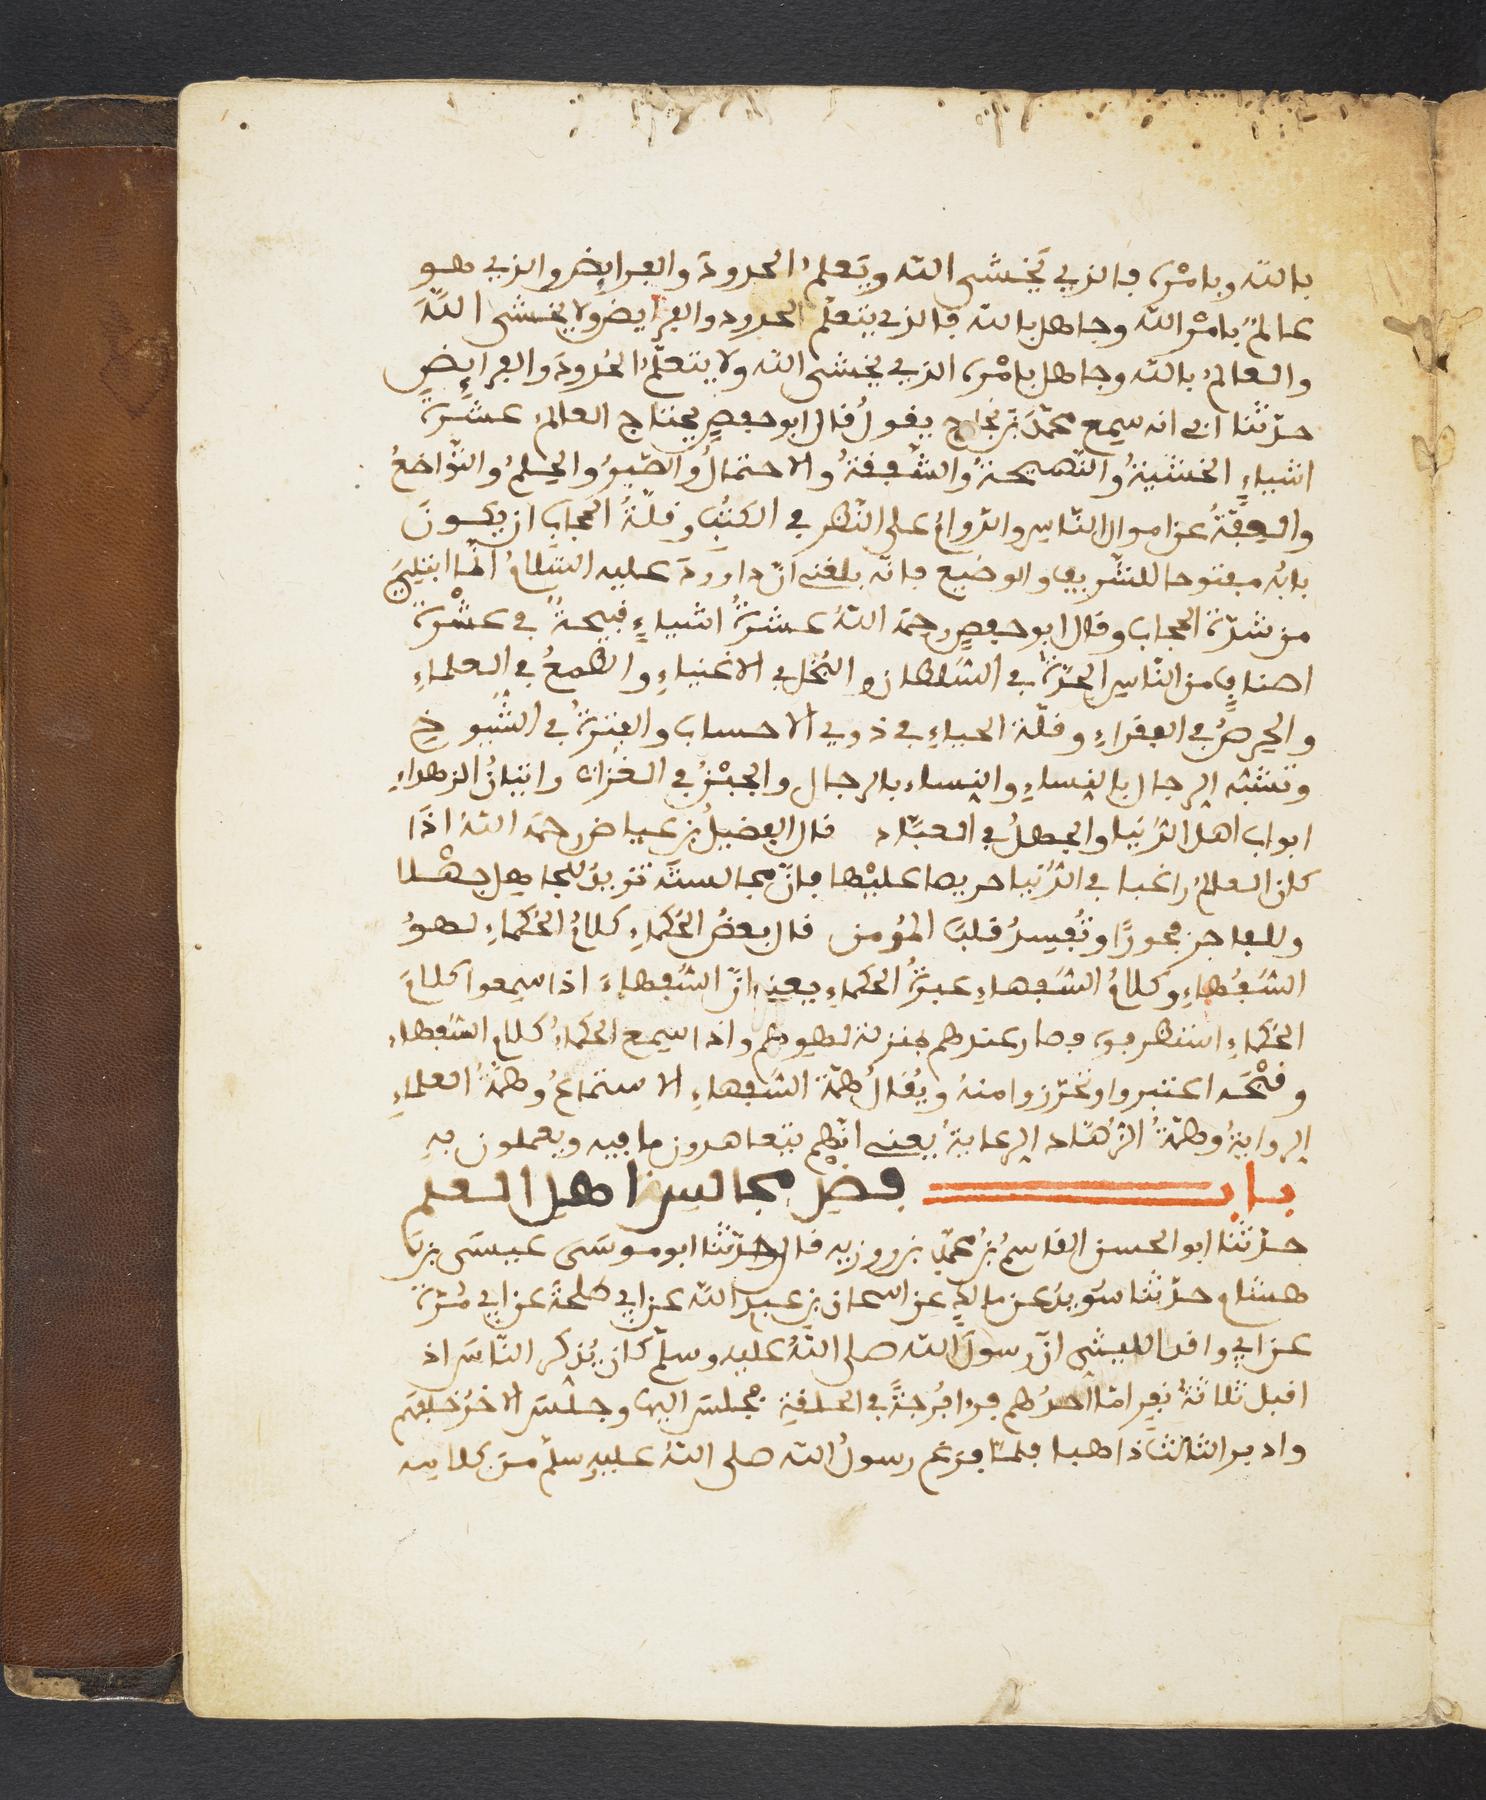 بالله وبامره فالذي يخشى الله ويعلم الحدود والفرايض والذي هو
عالم بامر الله وجاهل بالله فالذي يتعلم الحدود والفرايض ولا يخشى الله
والعالم بالله وجاهل بامره الذي يخشى الله ولا يتعلم الحدود والفرايض
حدثنا ابي انه سمع محمد بن جناح يقول قال ابو حفص يحتاج العالم عشرة
اشياء الخشية والنصيحة والشفقة والاحتمال والصبر والحلم والتواضع
والعفة عن اموال الناس والدوام على النظر في الكتب وقلة الحجاب ان يكون
بابه مفتوحا للشريف والوضيع فانه بلغني ان داوود عليه السلام انما ابتلي
من شدة الحجاب وقال ابو حفص رحمه الله عشرة اشياء قبيحة في عشرة
اصناف من الناس الحدة في السلطان والبخل في الاغنياء والطمع في العلماء
والحرص في الفقراء وقلة الحياء في ذوي الاحساب والفترة في الشيوخ
وتشبه الرجال بالنساء والنساء بالرجال والجبن في الغزاة واتيان الزهداء
ابواب اهل الدنيا والجهل في العباد قال الفضيل بن عياض رحمه الله اذا
كان العالم راغبا في الدنيا حريصا عليها فان مجالسته تزيد للجاهل جهلا
وللفاجر فجورا وتفسد قلب المؤمن قال بعض الحكماء كلام الحكماء لهو
السفهاء وكلام السفهاء عبرة الحكماء يعني ان السفهاء اذا سمعوا كلام
الحكماء استظرفوه فصار عندهم بمنزلة لهوهم واذا سمع الحكماء كلام السفهاء
وقبحه اعتبروا وتحرزوا منه ويقال همة السفهاء الاستماع وهمة العلماء
الرواية وهمة الزهاد الرعاية يعني انهم يتعاهدون ما فيه ويعملون به
باب فضل مجالس اهل العلم
حدثنا ابو الحسن القاسم بن محمد بن روزبه قال حدثنا ابو موسى عيسى بن
هشام حدثنا سويد عن مالك عن اسحاق بن عبد الله عن ابي طلحة عن ابي مرة
عن ابي واقد الليثي ان رسول الله صلى الله عليه وسلم كان يذكر الناس اذ
اقبل ثلاثة نفر اما احدهم فرءا فرجة في الحلقة فجلس اليها وجلس الاخر خلفهم
وادبر الثالث ذاهبا فلما فرغ رسول الله صلى الله عليه وسلم من كلامه